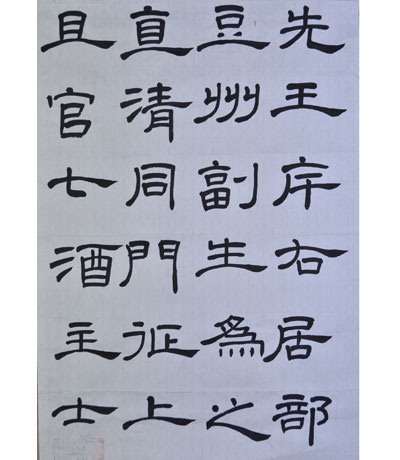 先王右居部
豆州副生爲之
直清同門征上
且官七酒主士